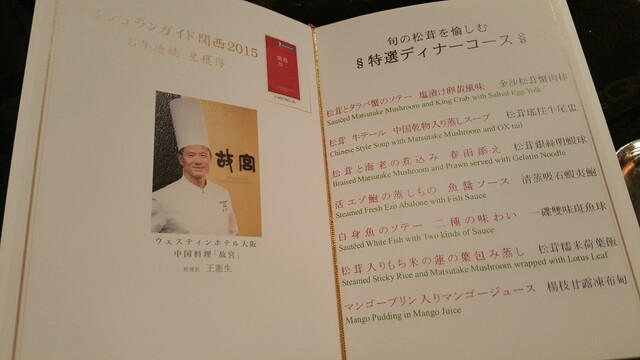 ミシュランガイド関西2015
五年連続 星獲得
故宮
ウェスティンホテル大阪
中国料理「故宮」
料理長 王憲生
旬の松茸を愉しむ
§特選ディナーコース§
松茸とタラバ蟹のソテー 塩漬け卵黄風味 金沙松茸蟹肉棒
Sautéed Matsutake Mushroom and King Crab with Salted Egg Yolk
松茸 牛テール 中国乾物入り蒸しスープ 松茸瑤柱牛尾盅
Chinese Style Soup with Matsutake Mushroom and OX tail
松茸と海老の煮込み 春雨添え 松茸銀絲明蝦球
Braised Matsutake Mushroom and Prawn served with Gelatin Noodle
活エゾ鮑の蒸しもの 魚醤ソース 清蒸吸石蝦夷鮑
Steamed Fresh Ezo Abalone with Fish Sauce
白身魚のソテー 二種の味わい 一碟雙味斑魚球
Sautéed White Fish with Two kinds of Sauce
松茸入りもち米の蓮の葉包み蒸し 松茸糯米荷葉飯
Steamed Sticky Rice and Matsutake Mushroom wrapped with Lotus Leaf
マンゴープリン入りマンゴージュース 楊枝甘露凍布甸
Mango Pudding in Mango Juice